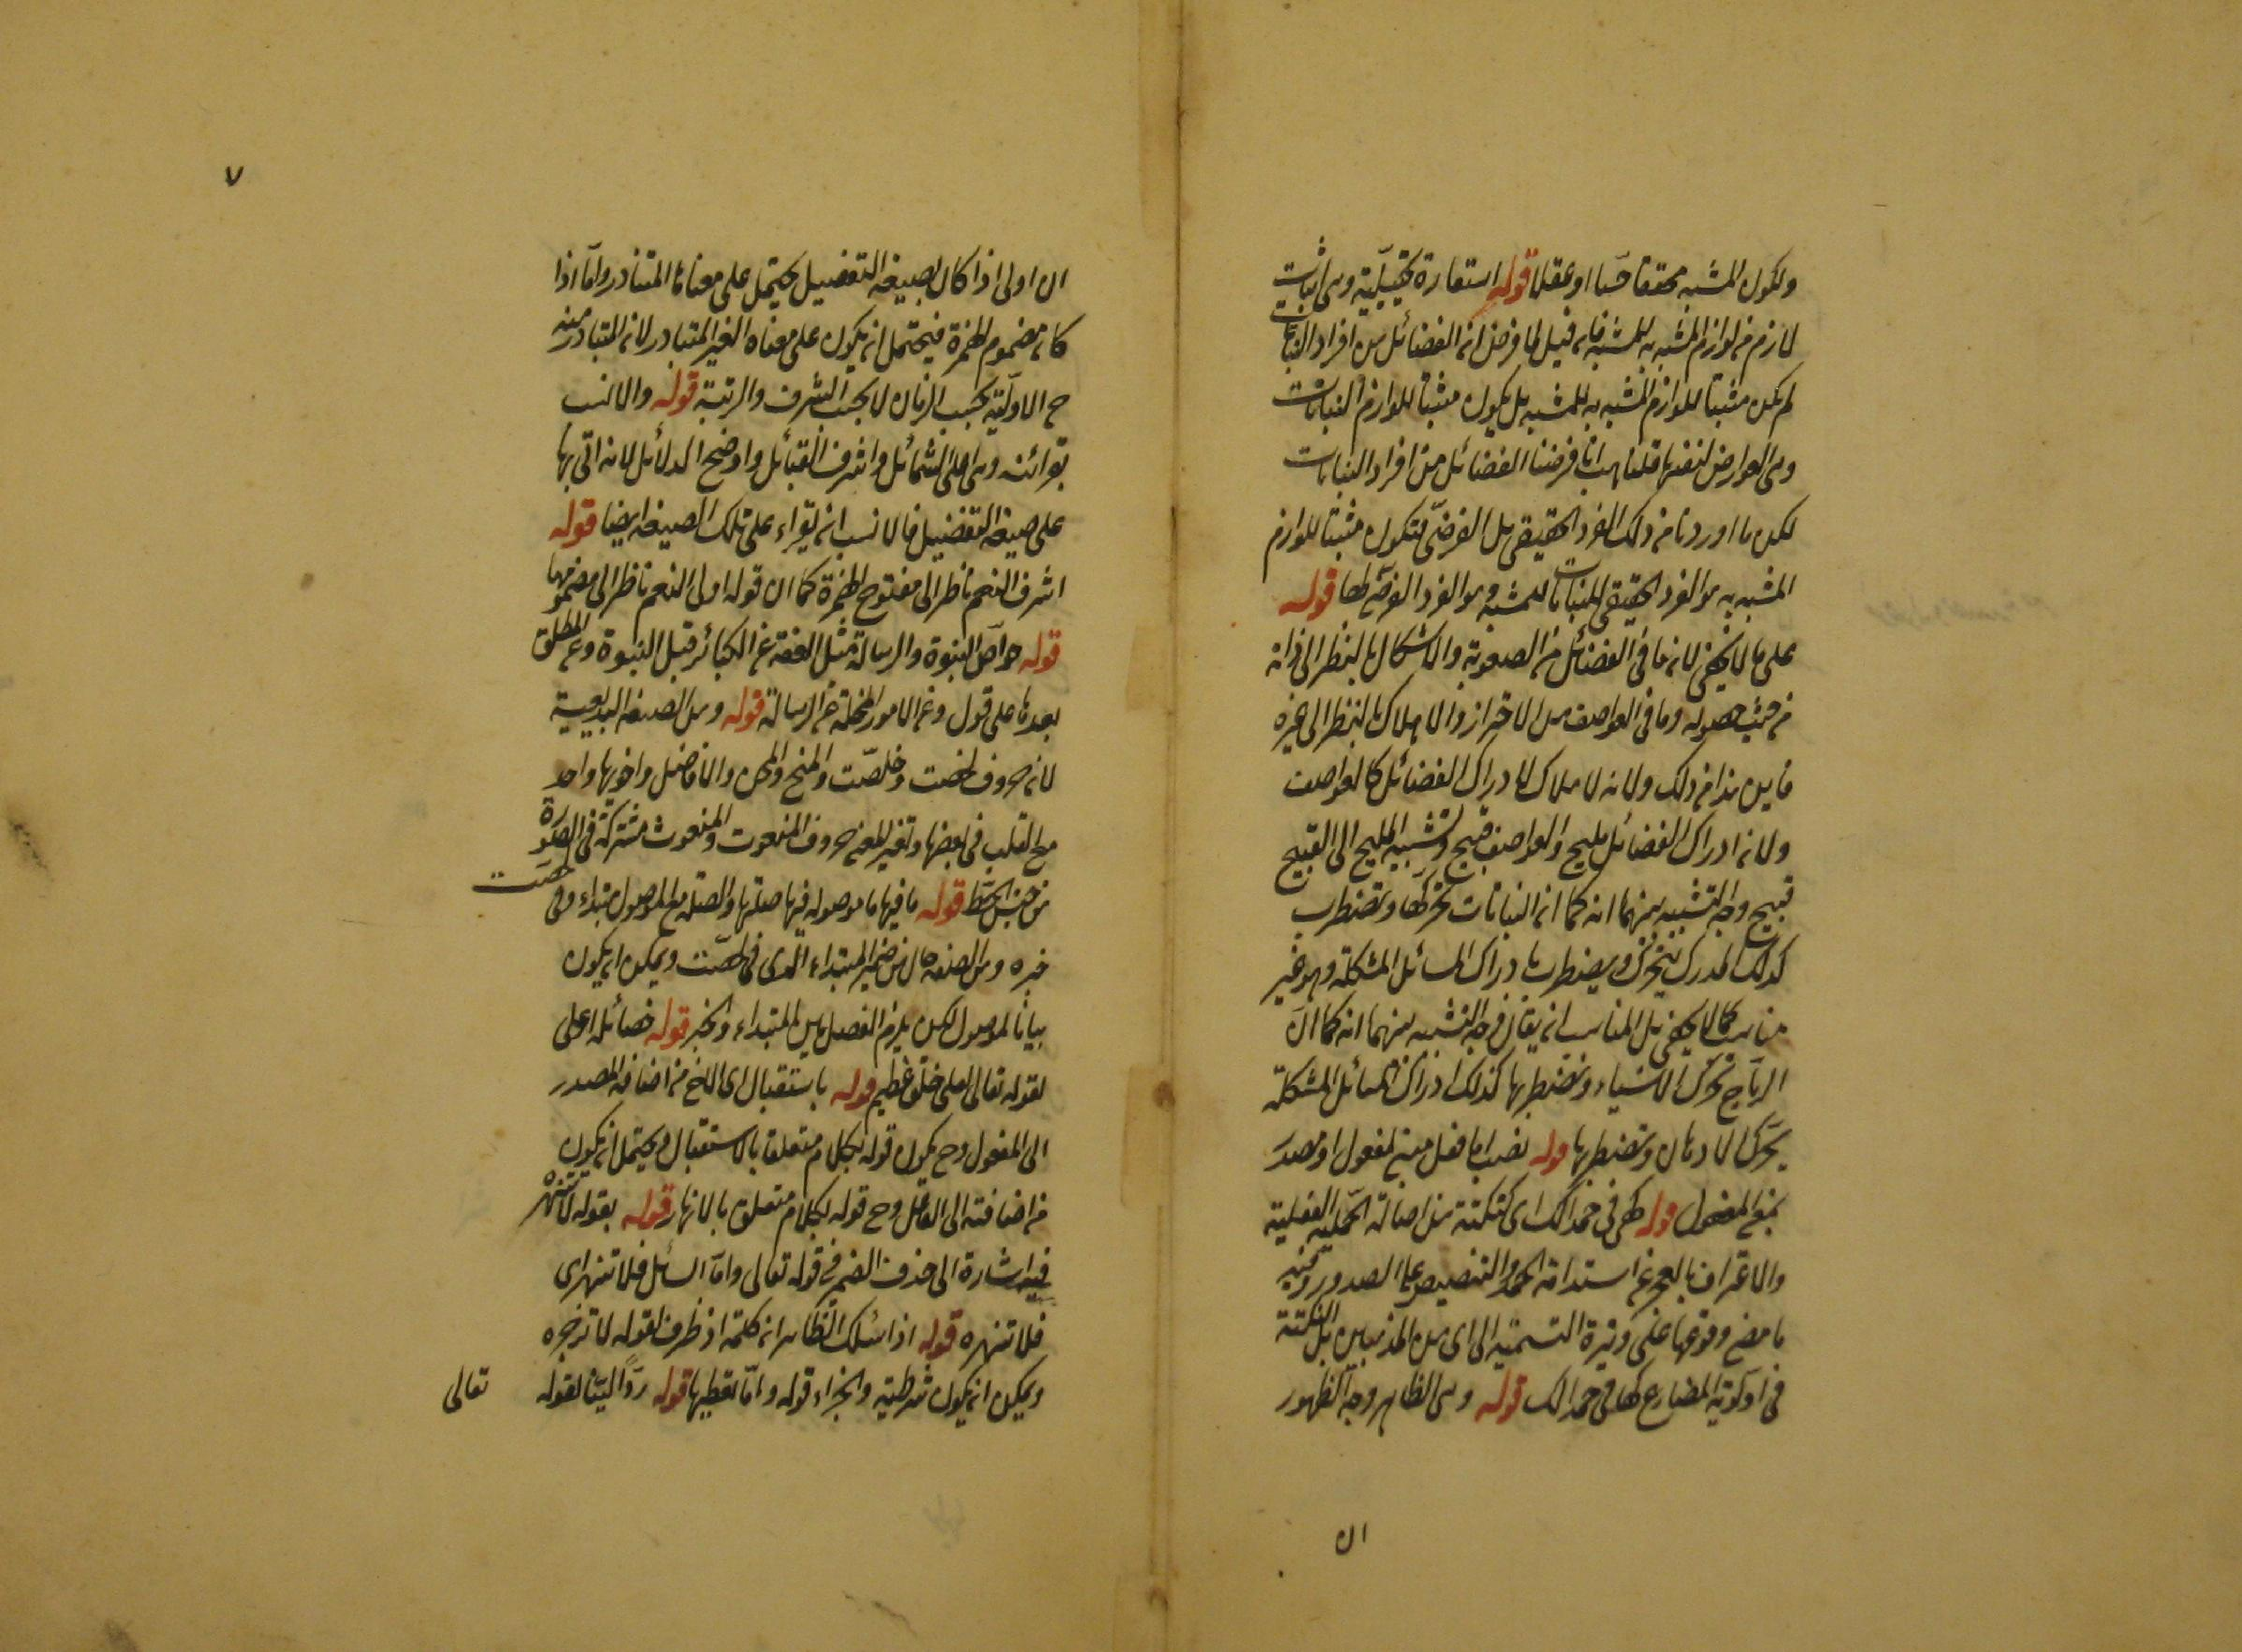 ولكون المشبه محققا حسا او عقلا قوله استعارة تخييلية وهى اثبات
لازم من لوازم المشبه به للمشبه فان قيل لما فرض ان الفضائل من افراد النباتات
لم يكن مثبتا للوازم المشبه به للمشبه بل يكون مثبتا للوازم النباتات
وهى العوارض لنفسها قلنا هب انا فرضنا الفضائل من افراد النباتات
لكن ما اوردنا من ذلك الفرد الحقيقى بل الفرضى فتكون مثبتا للوازم
المشبه به هو الفرد الحقيقى للنباتات للمشبه وهو الفرد الفرضى لها قوله
على ما لا يخفى لان ما فى الفضائل من الصعوبة والاشكال بالنظر الى ذاته
من حيث حصوله وما فى العواصف من الاحتراز والاهلاك بالنظر الى غيره
فاين هذا من ذلك ولانه لا هلاك لادراك الفضائل كالعواصف
ولان ادراك الفضائل مليح والعواصف قبيح وتشبيه المليح الى القبيح
قبيح وجه التشبيه بينهما انه كما ان النباتات تحركها وتضطرب
كذلك المدرك يتحرك ويضطرب بادراك المسائل المشكلة وهو غير
مناسب كما لا يخفى بل المناسب ان يقال وجه التشبيه بينهما انه كما ان
الرياح تحرك الاشياء وتضطربها كذلك ادراك المسائل المشكلة
يحرك الاذهان وتضطربها قوله نصب اما فعل مبنى لمفعول او مصدر
بمعنى المفعول قوله كهى فى حمدا لك اى كنكتة من اصالة الجملة الفعلية
والاعتراف بالعجز عن استدامة الحمد والتنصيص على الصدور وفيه
ما مضى وقوعها على وتيرة التسمية الى اى من المذهبين بل النكتة
فى اولوية المضارع كما فى حمدا لك قوله وهى الظاهر وجه الظهور
ان
٧
ان اولى اذا كان بصيغة التفضيل يحتمل على معناه المتبادر واما اذا
كان مضموم الهمزة فيحتمل ان يكون على معناه الغير المتبادر لان المتبادر منه
ح الاولية بحسب الزمان لا بحسب الشرف والرتبة قوله والانسب
بقرائنه وهى اعلى الشمائل واشرف القبائل واوضح الدلائل لانه اتى بها
على صيغة التفضيل فالانسب ان يقراء على تلك الصيغة ايضا قوله
اشرف النعم ناظر الى مفتوح الهمزة كما ان قوله اولى النعم ناظر الى مضمومها
قوله خواص النبوة والرسالة مثل العفة عن الكبائر قبل النبوة وعن المطلق
بعدها على قول وعن الامور المخلة عن الرسالة قوله ومن الصنعة البديعية
لان حروف لخصت وخلصت والمنح والمحن والافاضل واخويها واحد
مع القلب فى بعضها وتغير المعنى حروف المنعوت والمنعوث مشتركة فى الصورة
من جنس الخط قوله ما فيها ما موصوله فيها صلتها والصلة مع الموصول مبتداء وفى لخصت
خبره ومن الصنعة حال من ضمير المبتداء الذى فى لخصت ويمكن ان يكون
بيانا لموصول لكن يلزم الفصل بين المبتداء والخبر قوله خصائله اعلى
لقوله تعالى لعلى خلق عظيم قوله باستقبال اى الاخ من اضافة المصدر
الى المفعول وح يكون قوله بكلام متعلقا بالاستقبال ويحتمل ان يكون
من اضافته الى الفاعل وح قوله بكلام متعلق بالانهار قوله بقوله لا تنهر
فيه اشارة الى حذف الضمير فى قوله تعالى واما السائل فلا تنهر اى
فلا تنهره قوله اذا سئلك الظاهر ان كلمة اذ ظرف لقوله لا تزجره
ويمكن ان يكون شرطية والجزاء قوله واما تعطيها قوله ردا لينا لقوله
تعالى